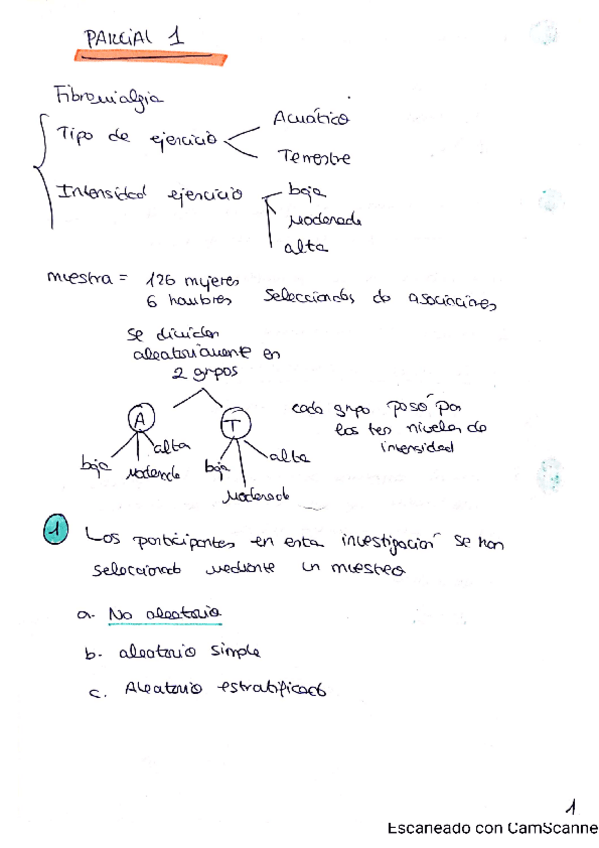 PARCIAL 1
Fibromialgia
Tipo de ejercicio
Acuático
Terrestre
Intensidad ejercicio
baja
Moderada
alta
muestra = 126 mujeres
6 hombres seleccionados de asociaciones
se dividen
aleatoriamente en
2 grupos
A
T
cada grupo pasó por
los tres niveles de
intensidad
baja
Moderado
alta
baja
Moderado
alta
1 Los participantes en esta investigación se han
seleccionado mediante un muestreo
a. No aleatorio
b. aleatorio simple
c. Aleatorio estratificado
1
Escaneado con CamScanne